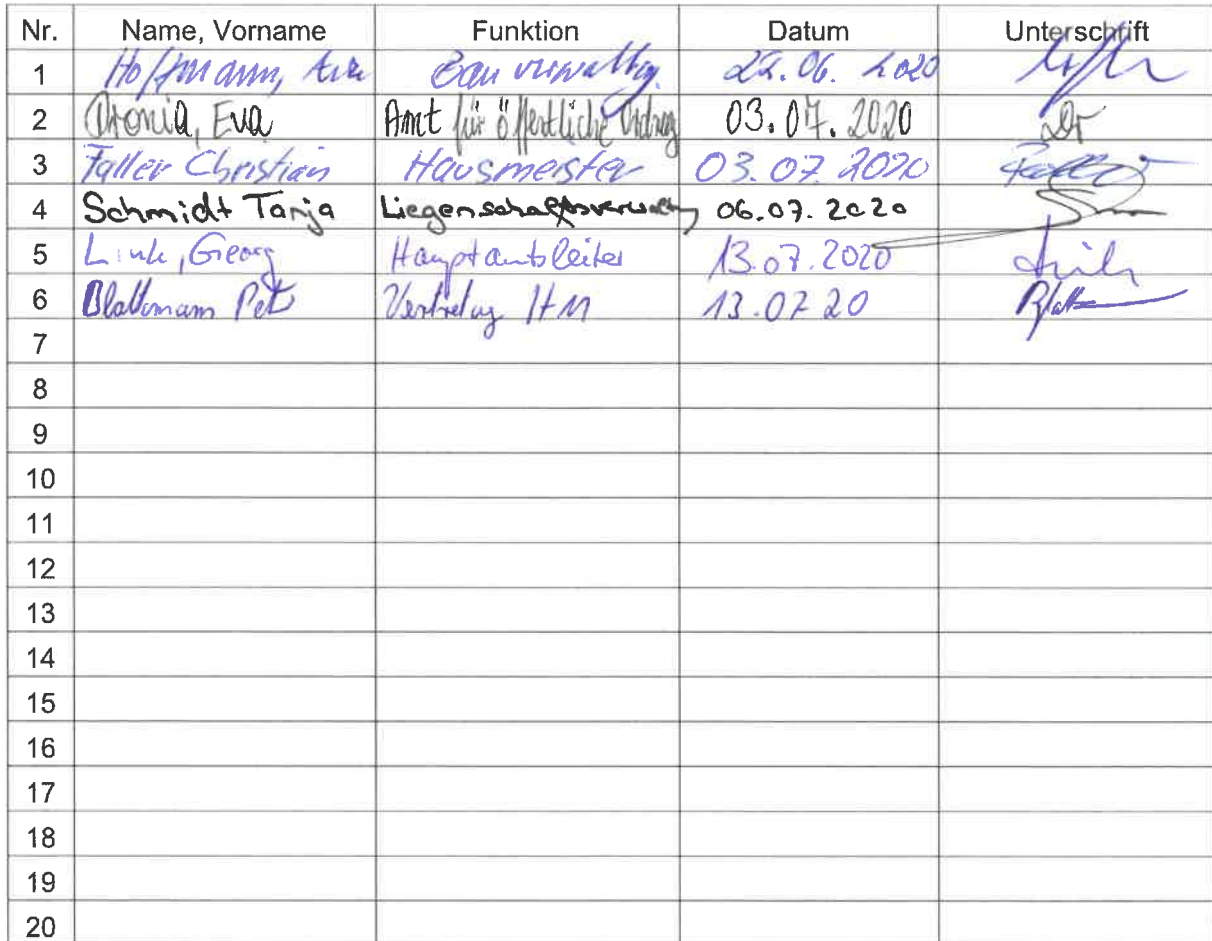 Nr. Name, Vorname Funktion Datum Unterschrift
1 Hoffmann, Bauverwaltung 22.06.2020
2 Dronia, Eva Amt für öffentliche Ordnung 03.07.2020 Dr
3 Faller Christian Hausmeister 03.07.2020
4 Schmidt Tanja Liegenschaftsverwaltung 06.07.2020
5 Link, Georg Hauptamtsleiter 13.07.2020 Link
6 Blattmann Vertretung HM 13.07.20
7
8
9
10
11
12
13
14
15
16
17
18
19
20